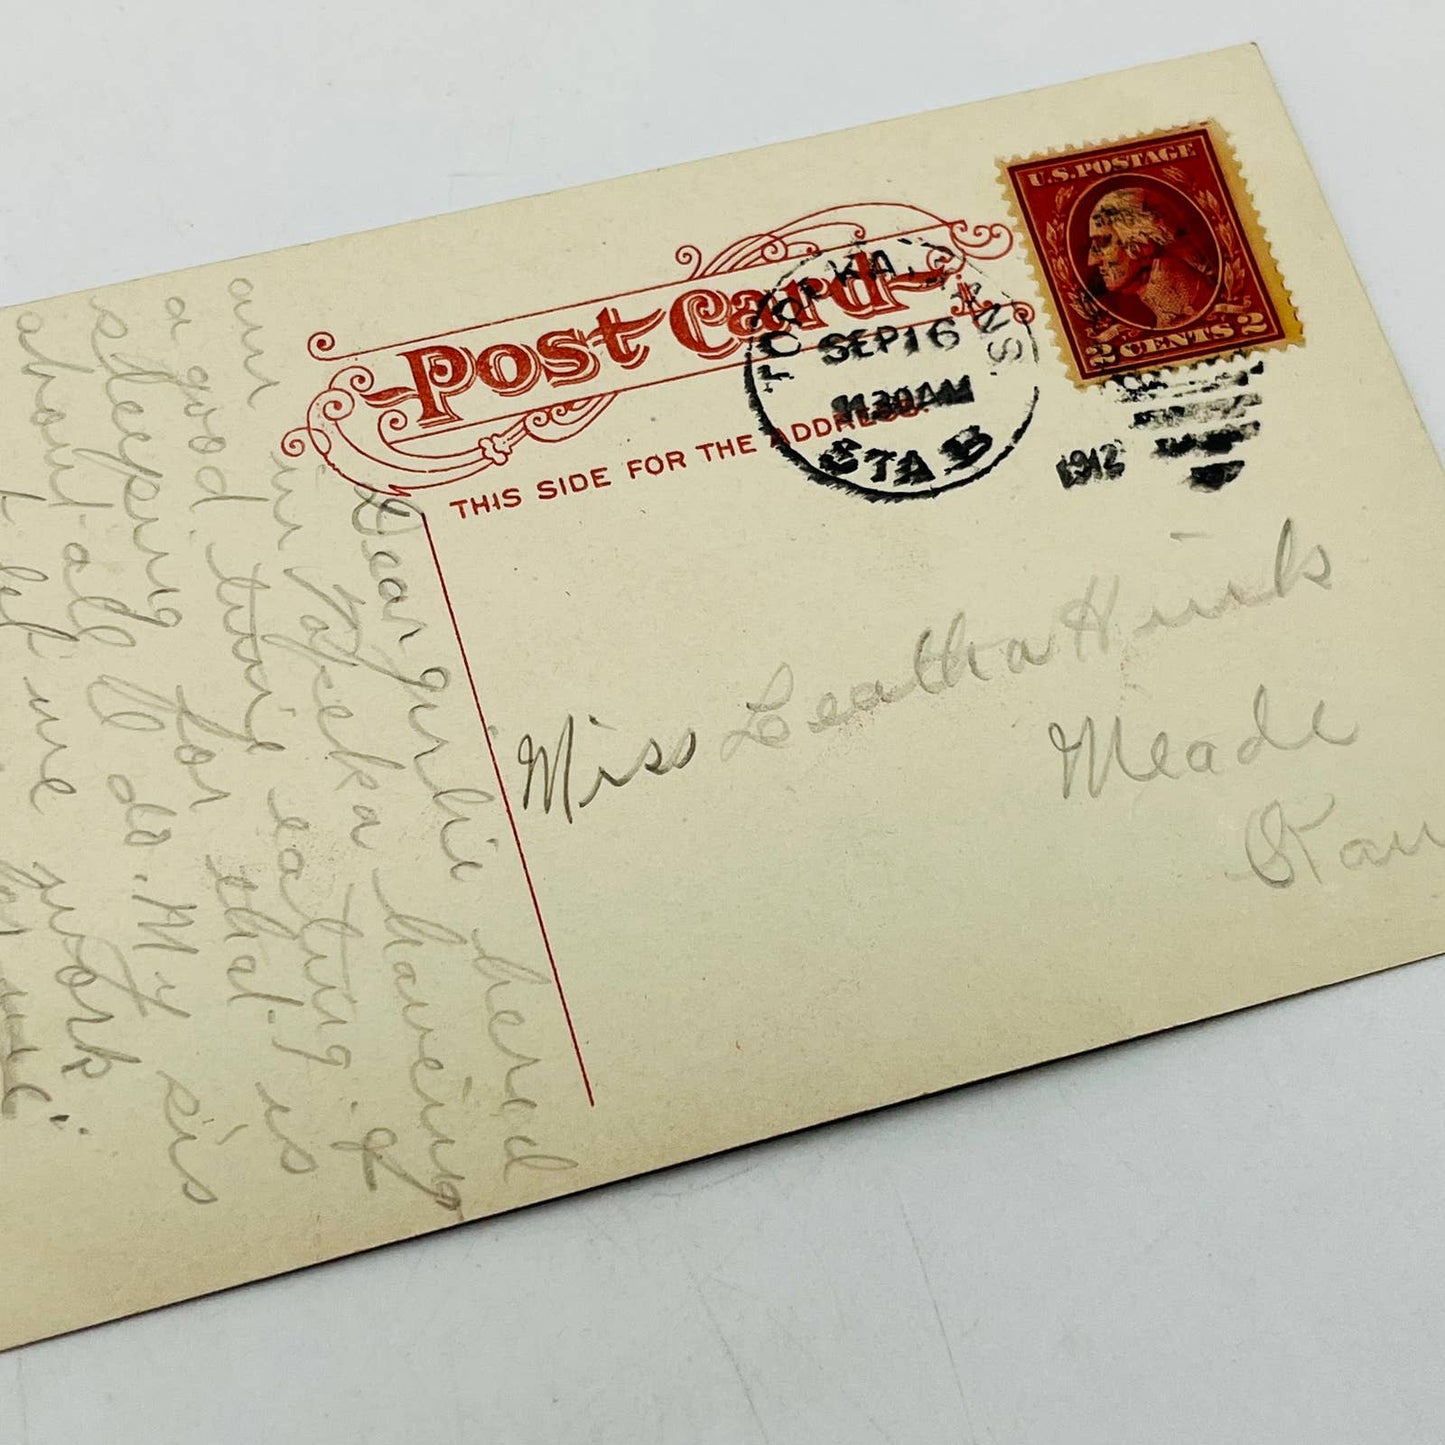 Post Card
THIS SIDE FOR THE ADDRESS.
TOPEKA, KANS.
SEP 16
11 30 AM
STA B
1912
U.S. POSTAGE
2 CENTS 2
Miss Leatha Hinks
Meade
Kan
Dear girlie here I
am in Topeka having
a good time eating &
sleeping for that is
about all I do. My sis
let me work